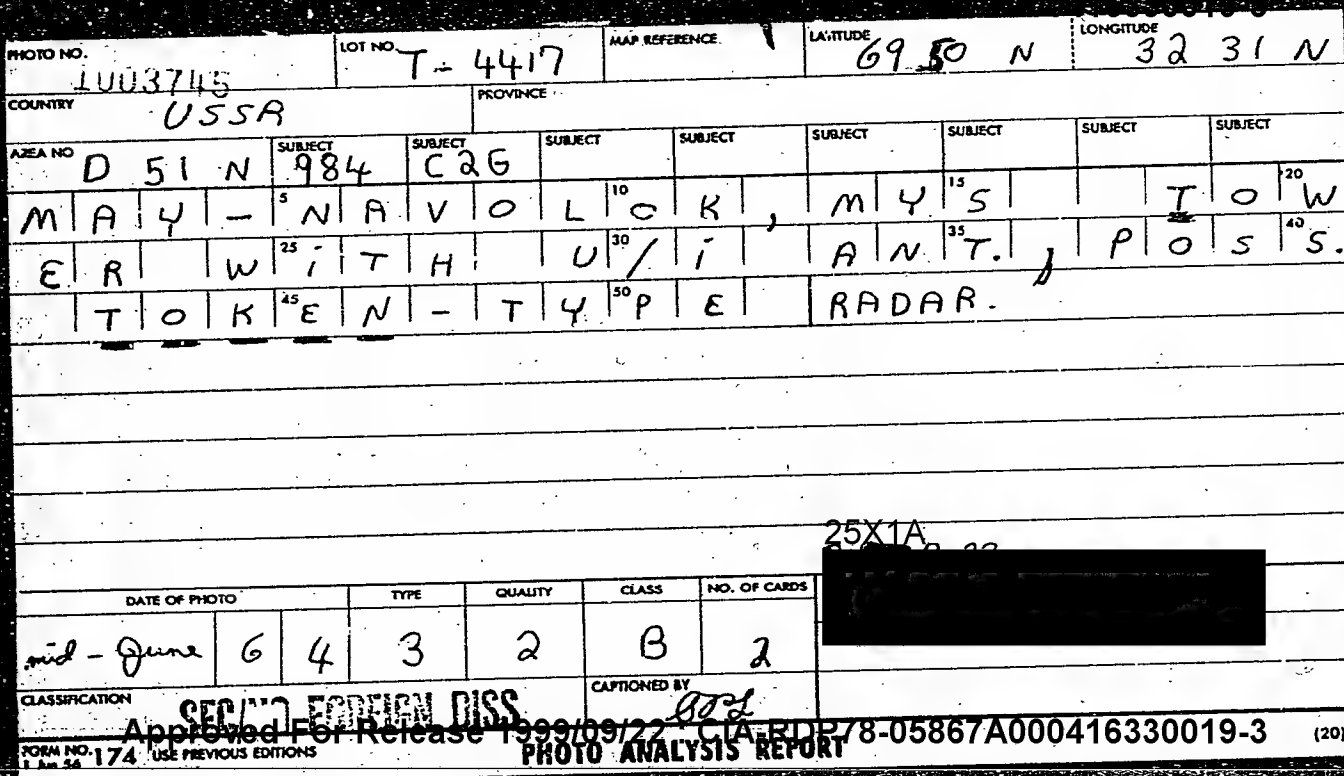 PHOTO NO. 1003745 LOT NO. T-4417 MAP REFERENCE LATITUDE 69 50 N LONGITUDE 32 31 N
COUNTRY USSR PROVINCE
AREA NO D 51 N SUBJECT 984 SUBJECT C2G SUBJECT SUBJECT SUBJECT SUBJECT SUBJECT SUBJECT
MAY-NAVOLOK, MYS TOW
ER WITH U/i ANT., POSS.
TOKEN-TYPE RADAR.
25X1A
DATE OF PHOTO TYPE QUALITY CLASS NO. OF CARDS
mid-June 64 3 2 B 2
CLASSIFICATION SEC/NO FOREIGN DISS CAPTIONED BY
Approved For Release 1999/09/22 : CIA-RDP78-05867A000416330019-3
FORM NO. 174 USE PREVIOUS EDITIONS PHOTO ANALYSIS REPORT (20)